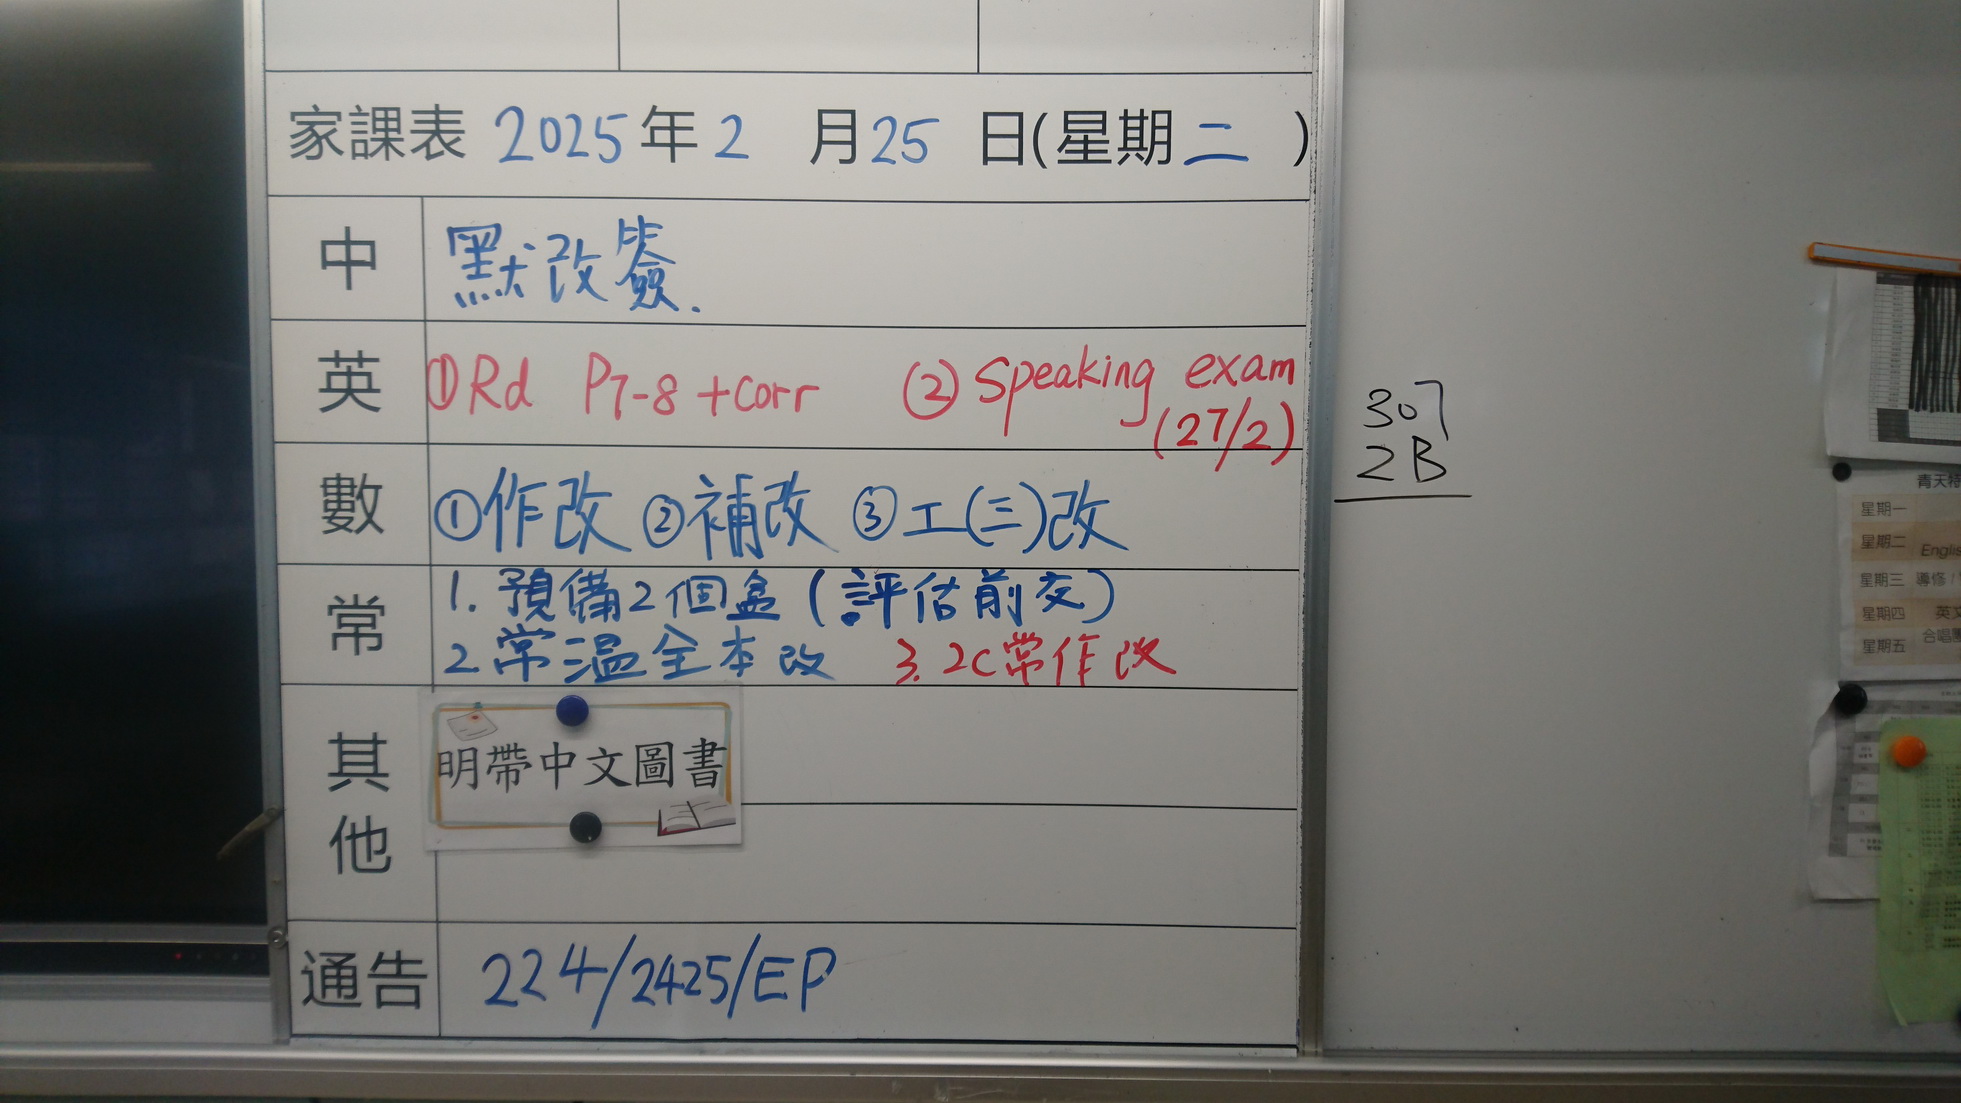 家課表 2025年2月25日(星期二)
中 默改簽.
英 ①Rd P7-8+corr ②Speaking exam
(27/2)
數 ①作改 ②補改 ③工(三)改
常 1. 預備2個盒(評估前交)
2. 常溫全本改 3. 2C常作改
其他 明帶中文圖書
通告 224/2425/EP
307
2B
青天
星期一
星期二 Englis
星期三 導修
星期四 英文
星期五 合唱團